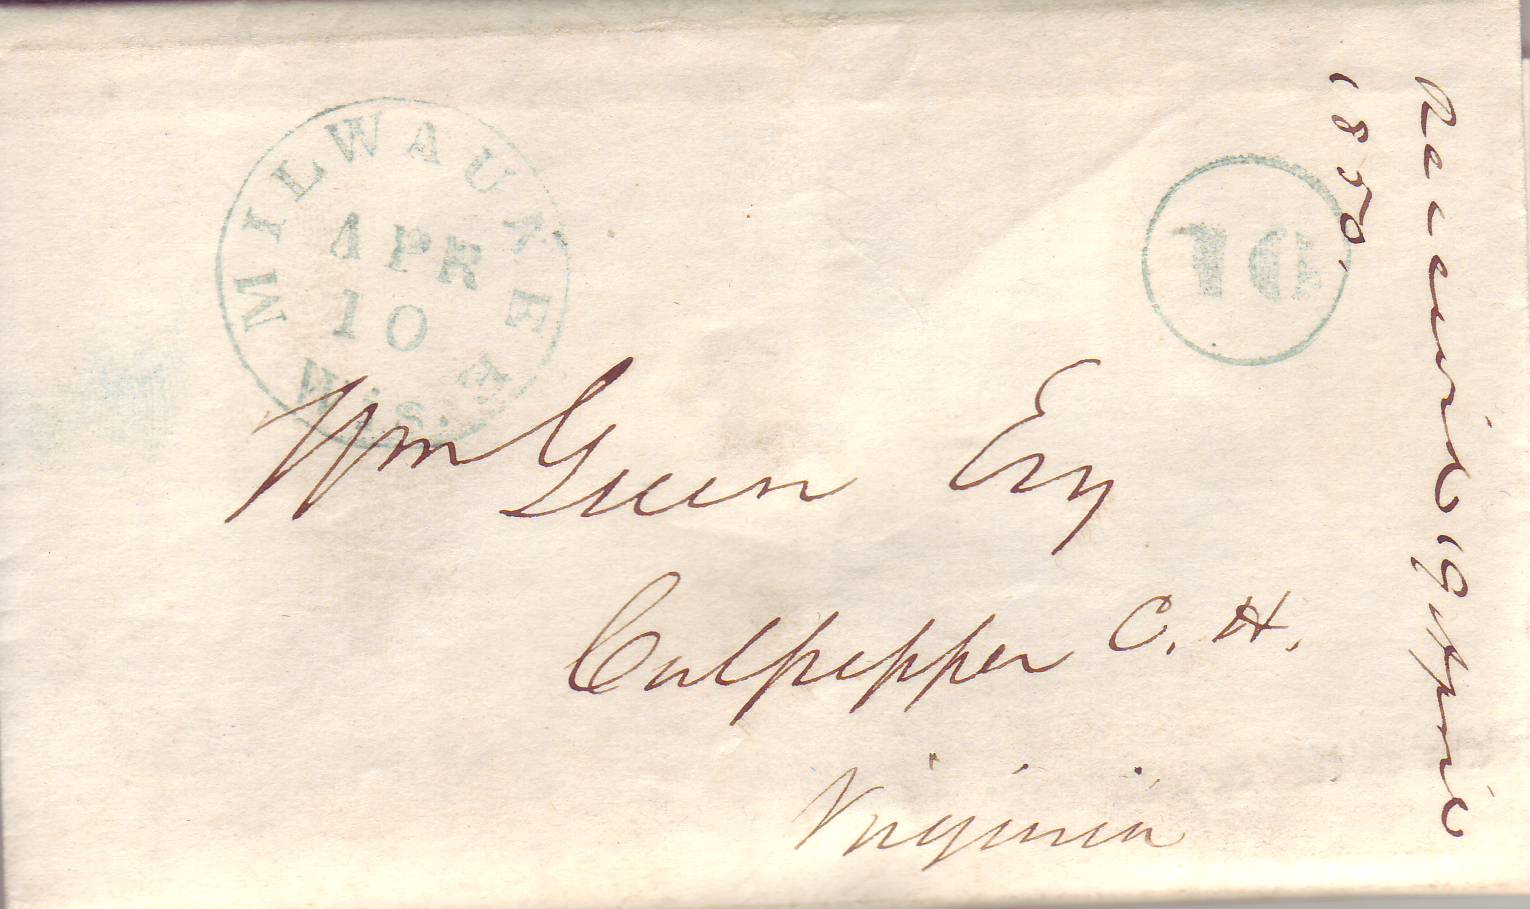 MILWAUKEE
WIS.
APR
10
10
Wm Green Esq
Culpepper C. H.
Virginia
Received 19 April
1850.